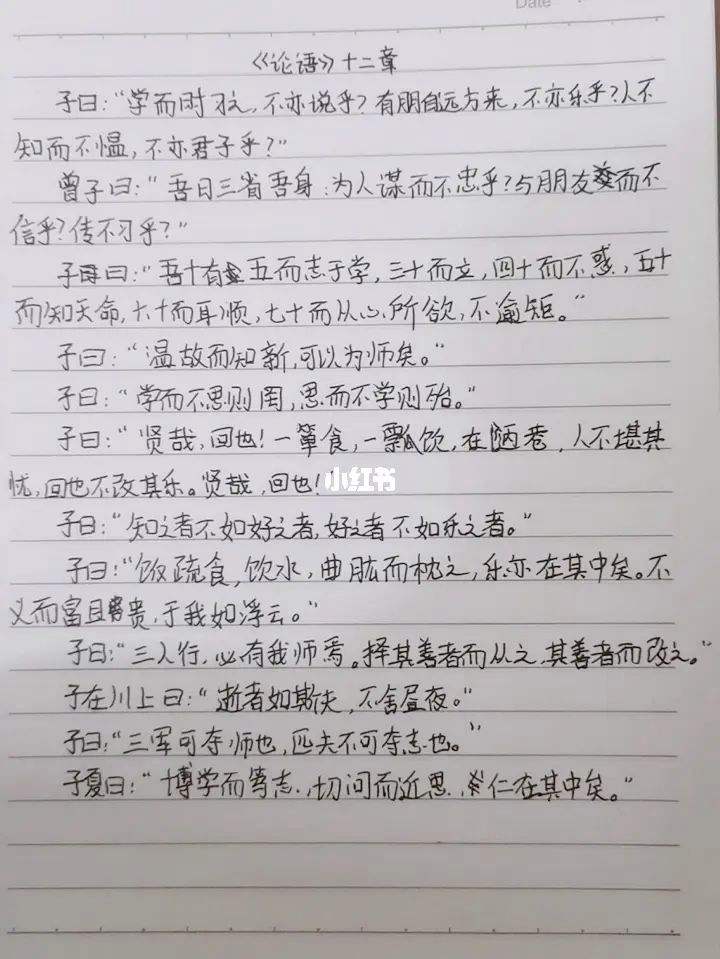 Date
《论语》十二章
子曰：“学而时习之，不亦说乎？有朋自远方来，不亦乐乎？人不
知而不愠，不亦君子乎？”
曾子曰：“吾日三省吾身：为人谋而不忠乎？与朋友交而不
信乎？传不习乎？”
子曰：“吾十有五而志于学，三十而立，四十而不惑，五十
而知天命，六十而耳顺，七十而从心所欲，不逾矩。”
子曰：“温故而知新，可以为师矣。”
子曰：“学而不思则罔，思而不学则殆。”
子曰：“贤哉，回也！一箪食，一瓢饮，在陋巷，人不堪其
忧，回也不改其乐。贤哉，回也！
小红书
子曰：“知之者不如好之者，好之者不如乐之者。”
子曰：“饭疏食，饮水，曲肱而枕之，乐亦在其中矣。不
义而富且贵，于我如浮云。”
子曰：“三人行，必有我师焉。择其善者而从之，其善者而改之。”
子在川上曰：“逝者如斯夫，不舍昼夜。”
子曰：“三军可夺师也，匹夫不可夺志也。”
子夏曰：“博学而笃志，切问而近思，仁在其中矣。”